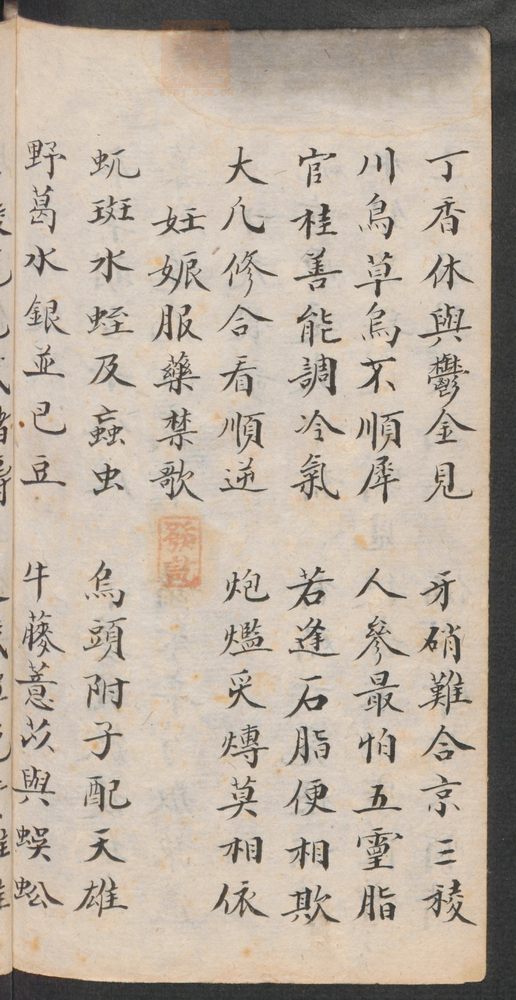 丁香休與鬱金見　牙硝難合京三稜
川烏草烏不順犀　人參最怕五靈脂
官桂善能調冷氣　若逢石脂便相欺
大凡修合看順逆　炮爁炙煿莫相依
妊娠服藥禁歌
蚖斑水蛭及蝱虫　烏頭附子配天雄
野葛水銀並巴豆　牛藤薏苡與蜈蚣